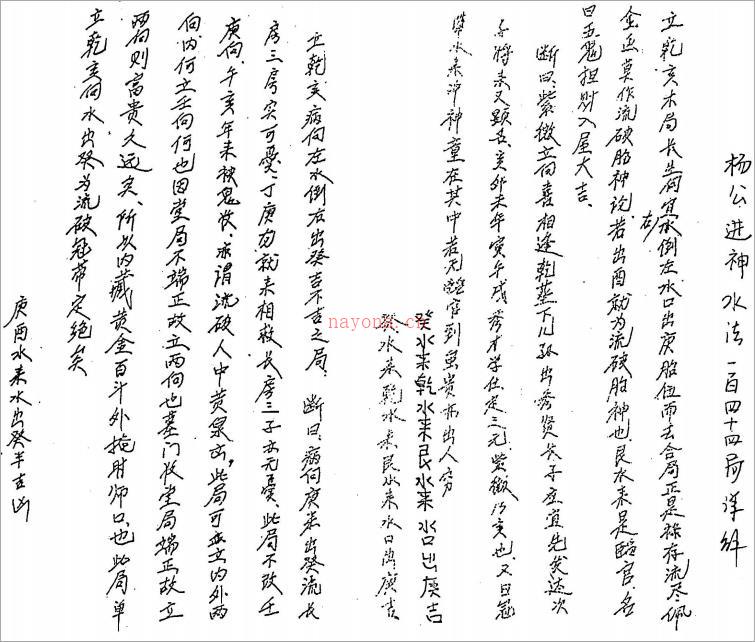 杨公进神水法一百四十四局详解
立乾亥木局长生向宜右水倒左水口出庚胎位而去合局正是禄存流尽佩
金鱼莫作流破胎神论若出酉就为流破胎神也艮水来是临官名
曰五鬼担财入屋大吉
断曰紫微立向喜相逢乾
下儿孙出秀贤长子应宜先发达次
子将来又显
亥卯未年寅午戌秀才学仕定三元紫微
亥也又曰冠
带水来冲神童在其中若无临官到虽贵亦出人穷
癸水来乾水来艮水来水口出庚吉
癸水来乾水来艮水来水口出庚吉
立乾亥病向左水倒右出癸吉不吉之局
断曰病向庚
出癸流长
房三房实可忧丁庚
就来相救长房三子亦无忧此局不改壬
庚向午亥年来被鬼收
谓流破人中黄泉凶此局可
立内外两
向内何立壬向何也因堂局不端正故立两向也墓门收堂局端正故立
两向则富贵久远矣所以内藏黄金百斗外掩肘
口也此局单
立乾亥向水出癸为流破冠带定绝矣
庚酉水来水出癸半吉凶
nayona.cn